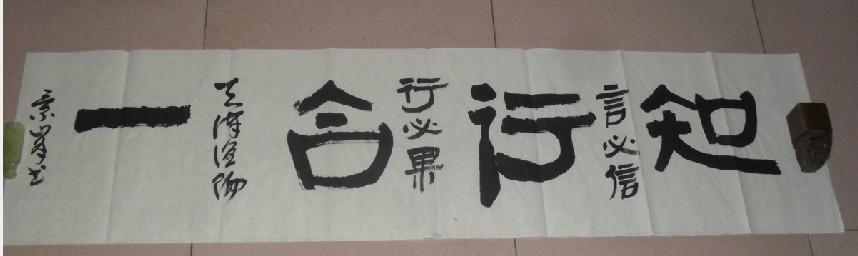 知行合一
言必信
行必果